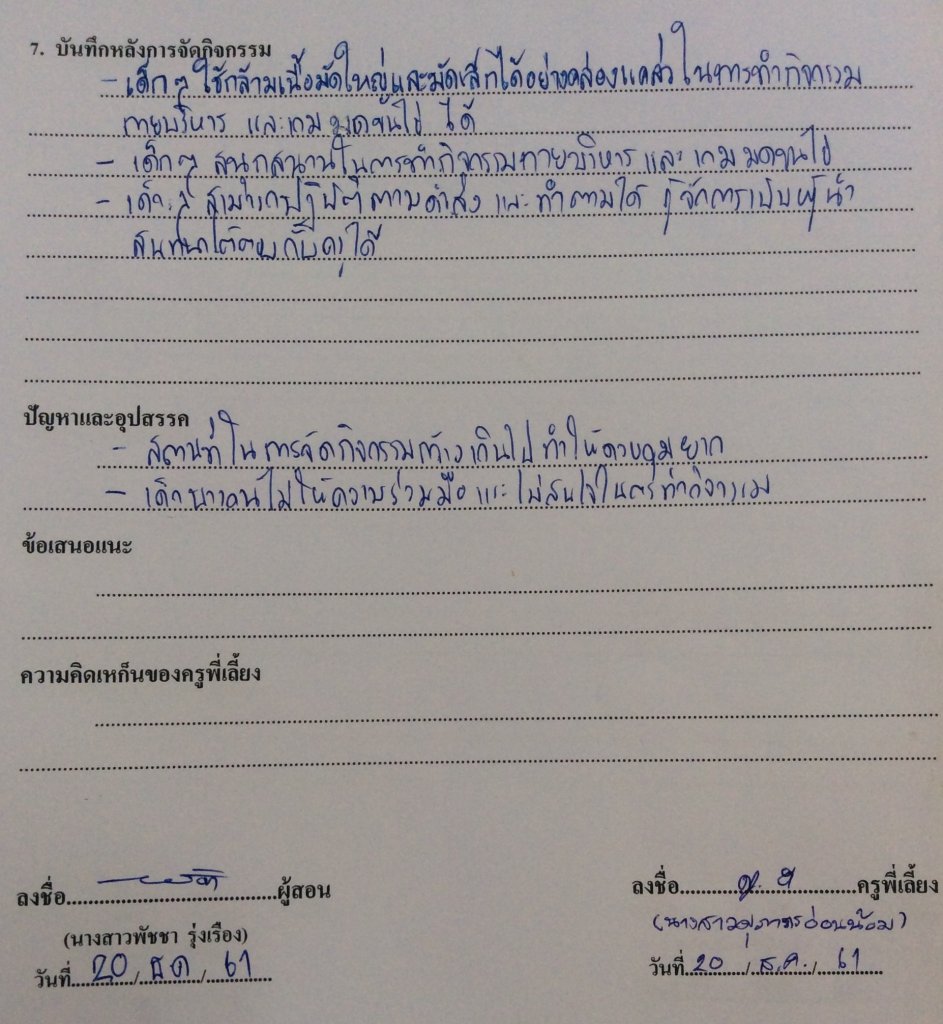 7. บันทึกหลังการจัดกิจกรรม
- เด็กๆ ใช้กล้ามเนื้อมัดใหญ่และมัดเล็กได้อย่างคล่องแคล่วในการทำกิจกรรม
กายบริหาร และเกม มดขนไข่ ได้
- เด็กๆ สนุกสนานในการทำกิจกรรมกายบริหาร และ เกม มดขนไข่
- เด็กๆ สามารถปฏิบัติตามคำสั่ง และ ทำตามได้ รู้จักการเป็นผู้นำ
สนทนาโต้ตอบกับครูได้
ปัญหาและอุปสรรค
- สถานที่ในการจัดกิจกรรมกว้างเกินไปทำให้ควบคุมยาก
- เด็กบางคนไม่ให้ความร่วมมือ และ ไม่สนใจในการทำกิจกรรม
ข้อเสนอแนะ
ความคิดเหก็นของครูพี่เลี้ยง
ลงชื่อ ผู้สอน
ลงชื่อ ครูพี่เลี้ยง
(นางสาวพัชชา รุ่งเรือง)
(นางสาว อ่อนน้อม)
วันที่ 20 / ธค / 61
วันที่ 20 / ธ.ค. / 61